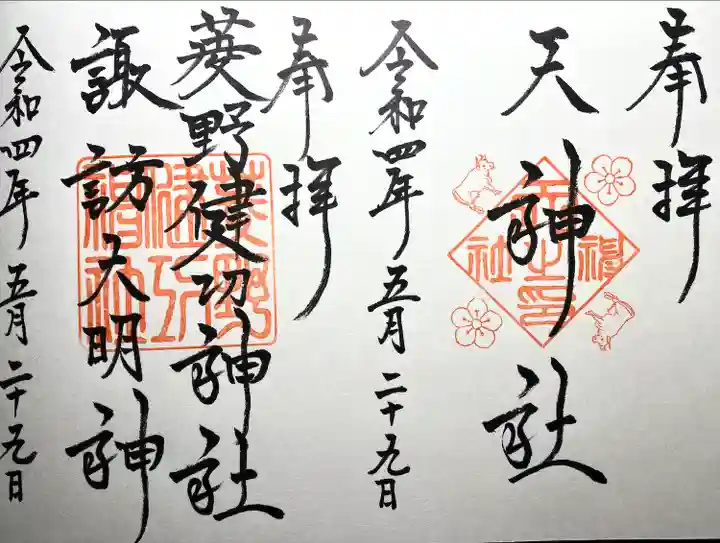 奉拝
天神社
令和四年五月二十九日
奉拝
菱野健功神社
諏訪大明神
令和四年五月二十九日